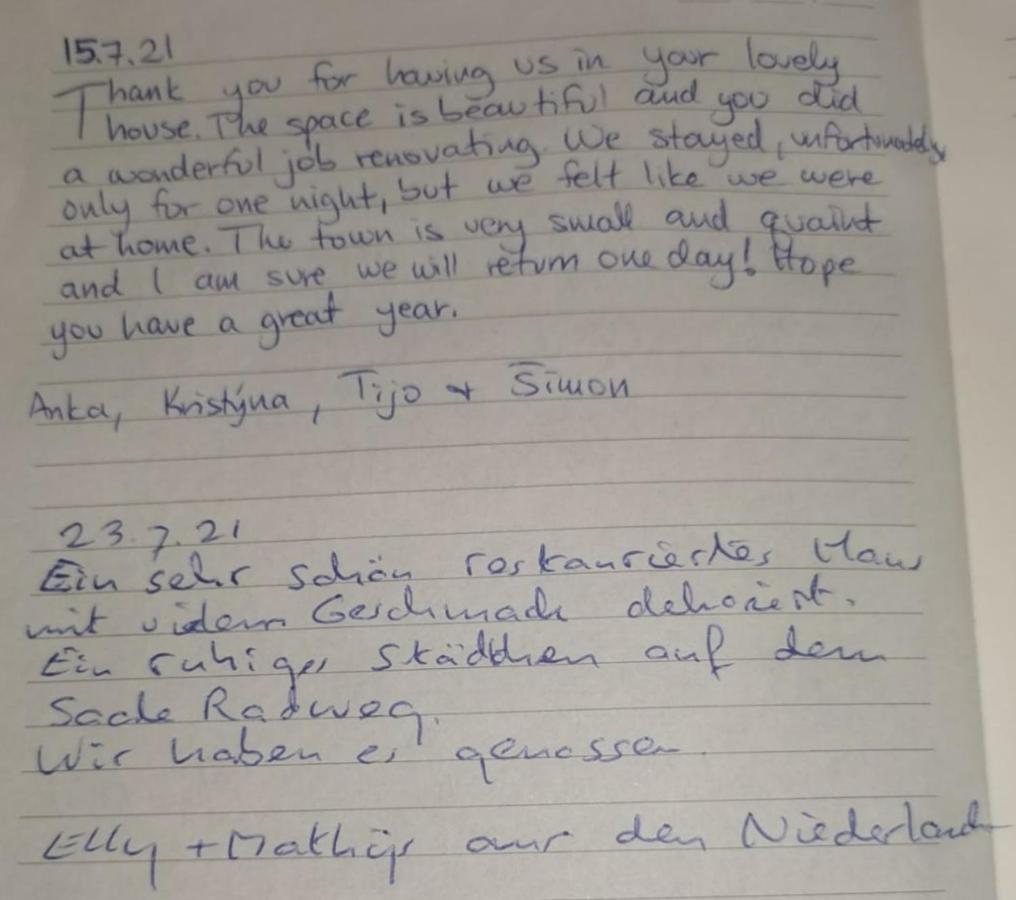 15.7.21
Thank you for having us in your lovely
house. The space is beautiful and you did
a wonderful job renovating. We stayed, unfortunately
only for one night, but we felt like we were
at home. The town is very small and quaint
and I am sure we will return one day! Hope
you have a great year.
Anka, Kristýna, Tijo + Šimon
23.7.21
Ein sehr schön restauriertes Haus
mit vielem Geschmack dekoriert.
Ein ruhiges Städtchen auf dem
Saale Radweg.
Wir haben es genossen.
Elly + Mathijs aus den Niederland